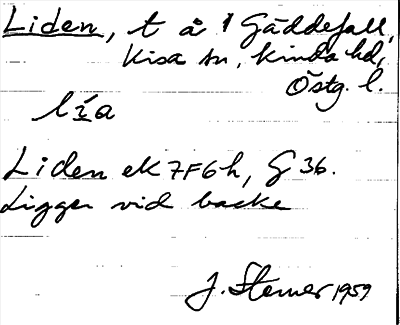 Liden, t å 1 Gäddefall,
Kisa sn, Kinda hd,
Östg. l.
lía
Liden ek 7F6h, G 36.
Ligger vid backe
J. Stemer 1959